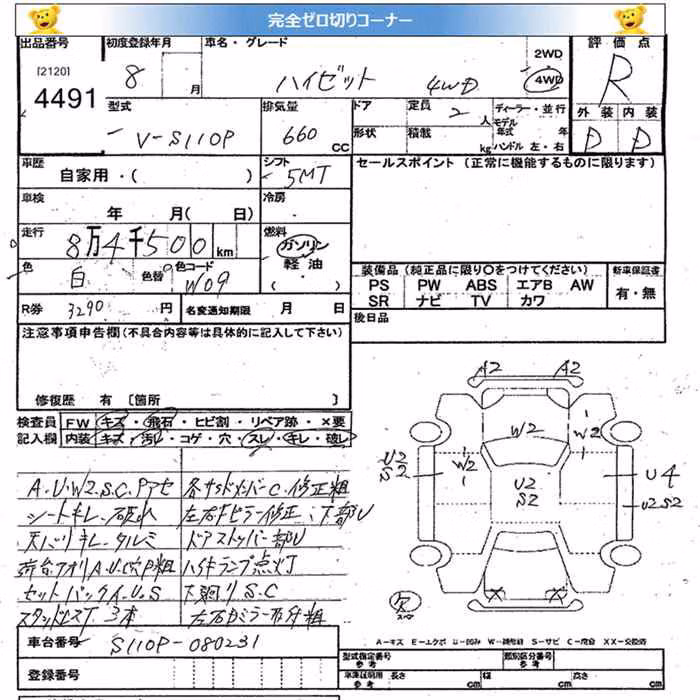 完全ゼロ切りコーナー
出品番号
[2120]
4491
初度登録年月
8
月
車名・グレード
ハイゼット 4WD
2WD
4WD
評価点
R
外装 内装
D D
型式
V-S110P
排気量
660
CC
ドア
形状
定員
2
人
積載
kg
ディーラー・並行
モデル
年式 年
ハンドル 左・右
車歴
自家用・( )
シフト
5MT
セールスポイント (正常に機能するものに限ります)
車検
年 月( 日)
冷房
走行
8万4千500km
燃料
ガソリン
軽油
( )
色
白
色替
色コード
W09
装備品 (純正品に限り○をつけてください)
PS PW ABS エアB AW
SR ナビ TV カワ
新車保証書
有・無
R券
3290 円
名変通知期限 月 日
後日品
注意事項申告欄(不具合内容等は具体的に記入して下さい)
修復歴 有 〔箇所 〕
検査員
記入欄
FW キズ・飛石・ヒビ割・リペア跡・×要
内装 キズ・汚レ・コゲ・穴・スレ・キレ・破レ
A.U.W2.S.C.Pアセ
シートキレ
ドアストッパー部U
点灯
セットバックイ.U.S
下廻りS.C
3本
A2 A2
W2
W2
W2
U2
S2
U2
S2
U4
U2 S2
欠
スペア
A-キズ E-エクボ U-凹み W-補修跡 S-サビ C-腐食 XX-交換済
車台番号
S110P-080231
登録番号
型式指定番号
参考
類別区分番号
参考
車庫証明用
参考
長さ cm
幅 cm
高さ cm